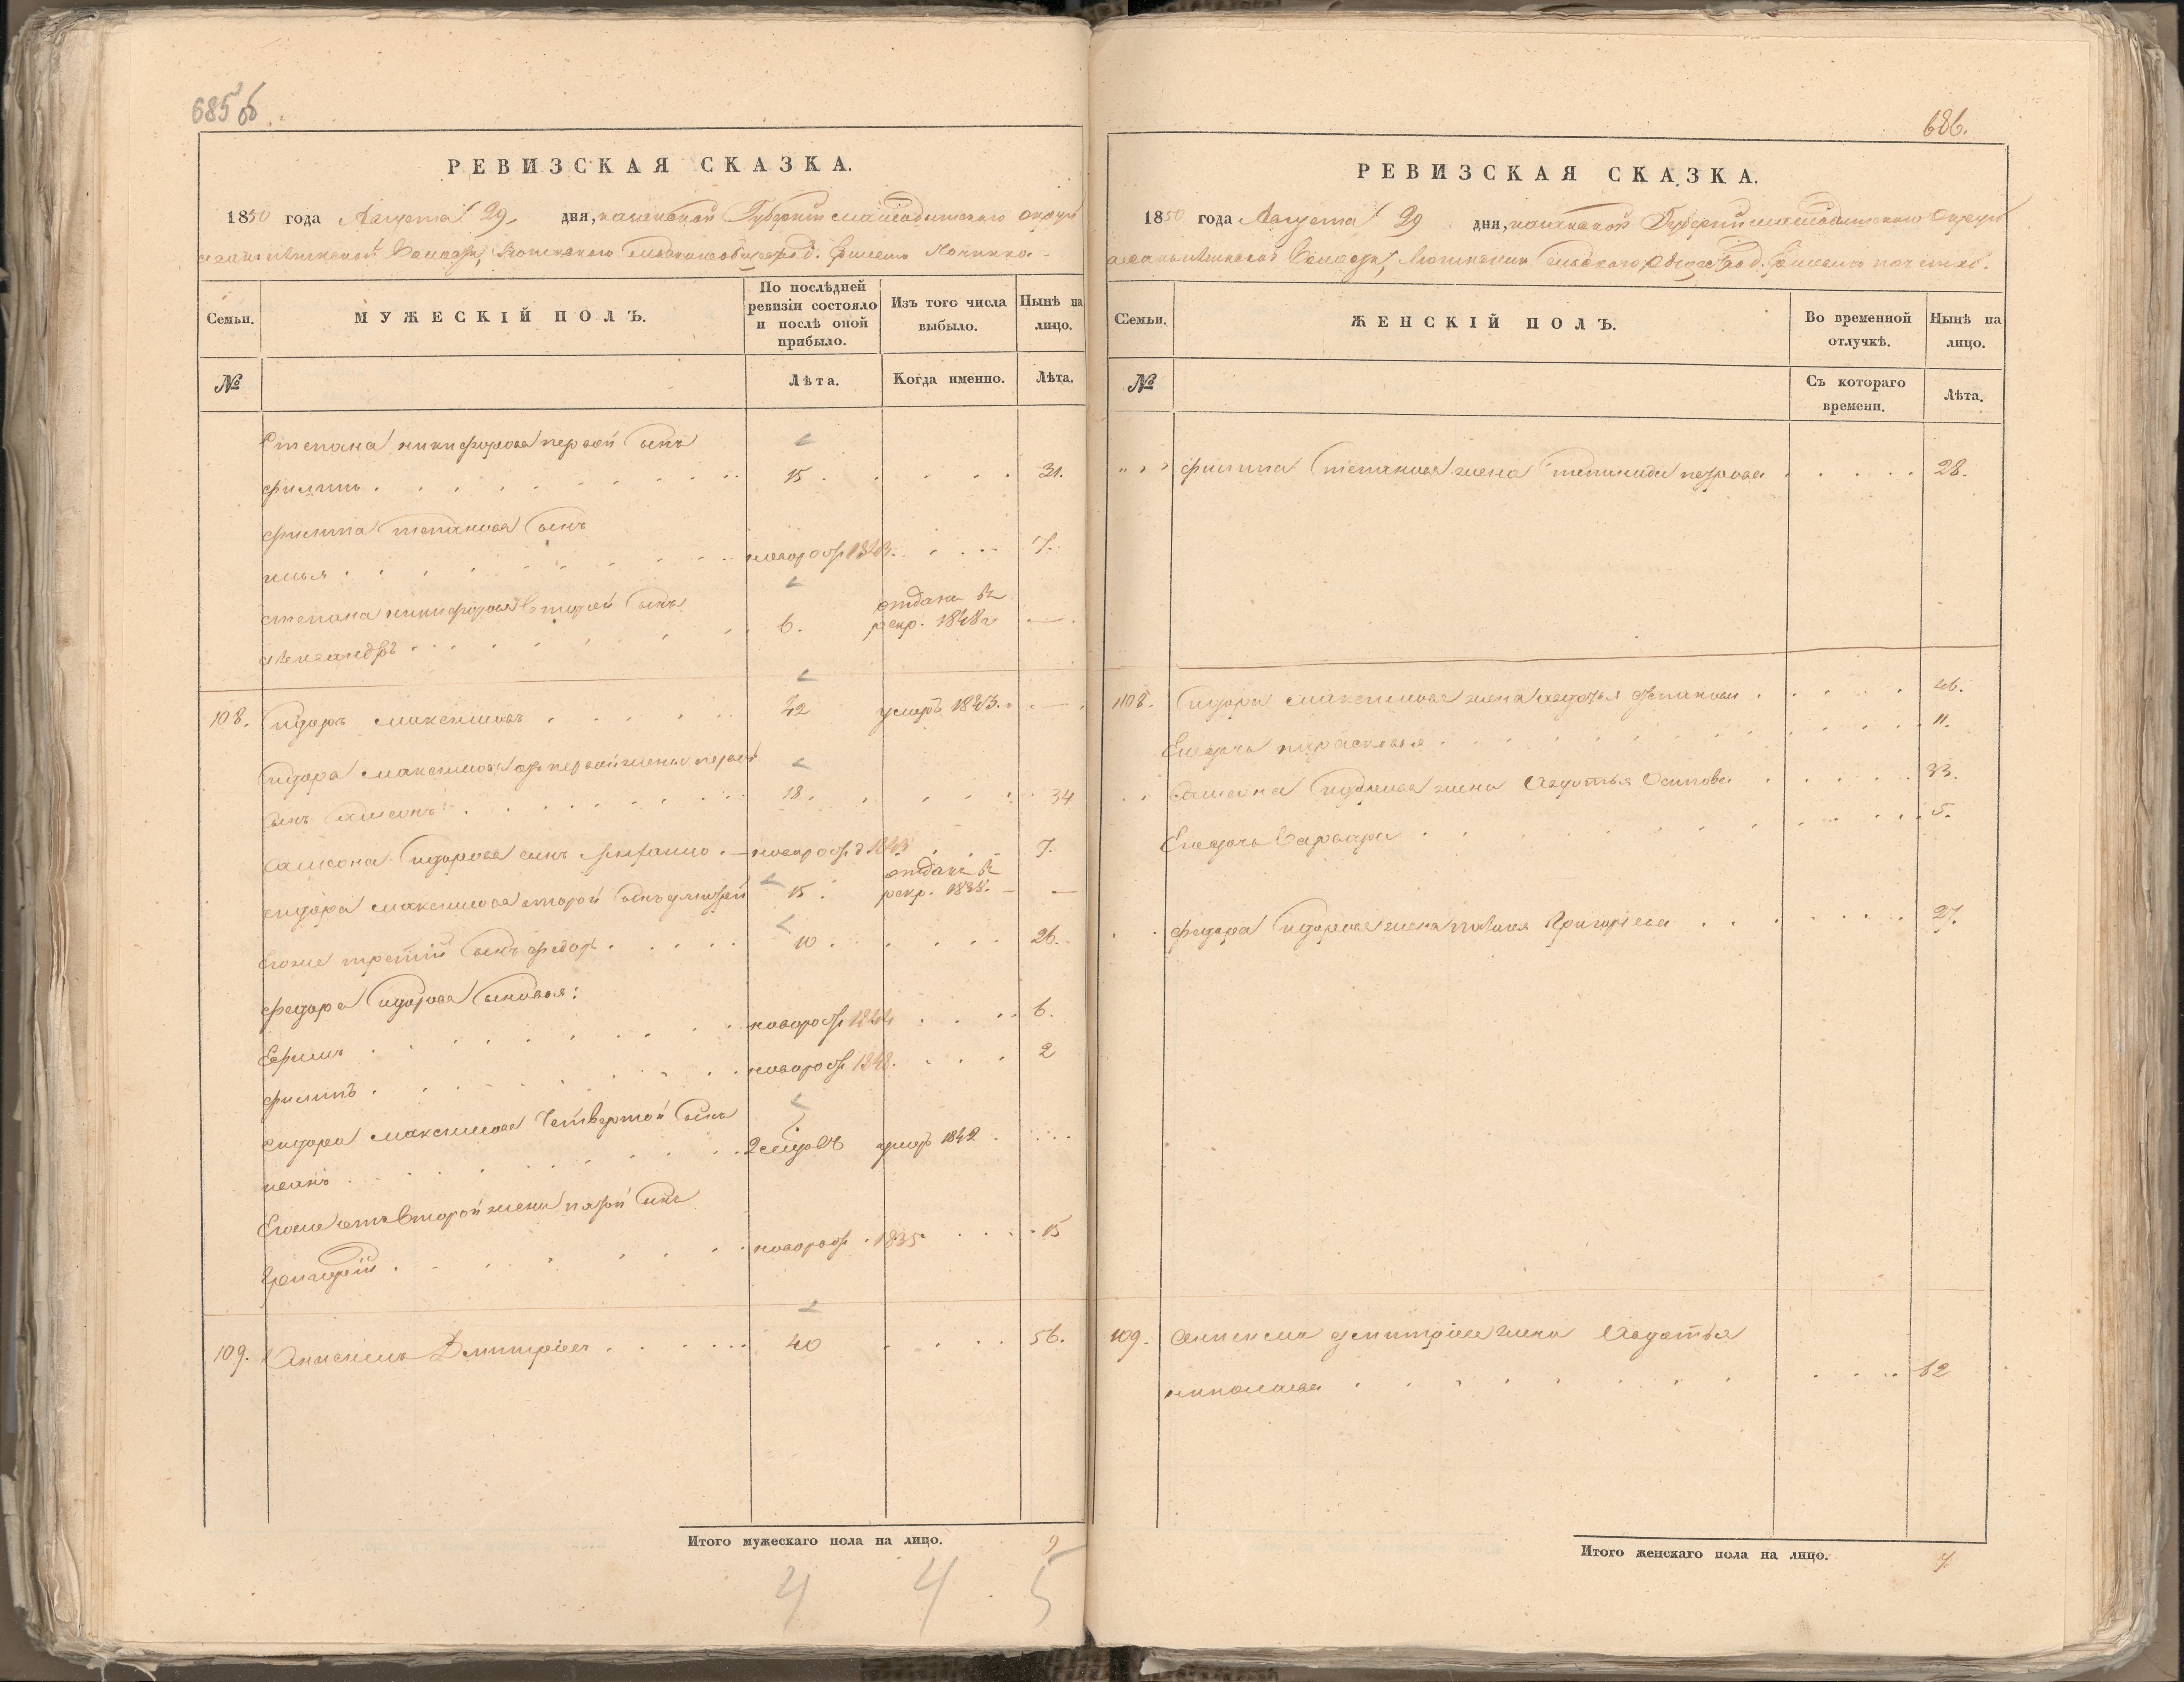 685об
РЕВИЗСКАЯ СКАЗКА.
1850 года Августа 29 дня, казанской Губернии мамадышского округа
волости, сельскаго д.
Семьи.
МУЖЕСКІЙ ПОЛЪ.
По послѣдней ревизіи состояло и послѣ оной прибыло.
Изъ того числа выбыло.
Нынѣ на лицо.
№
Лѣта.
Когда именно.
Лѣта.
Степана никифорова первой сынъ
филипъ 15 31.
филипа степанова сынъ
илья новорож 1843. 7.
степана никифорова второй сынъ
александръ 6. отданъ въ рекр. 1848г —
108. сидоръ максимовъ 42 умеръ 1843. —
сидора максимова отъ первой жены первой
сынъ самсонъ 18. 34
самсона сидорова сынъ новорожд 1843 7.
сидора максимова второй сынъ 15. отданъ въ рекр. 1838. —
Егоже третій сынъ федоръ 10. 26.
федора сидорова сыновья:
Ефимъ новорож 1844 6.
филипъ новорож 1848. 2
сидора максимова четвертой сынъ
иванъ умеръ 1842
Егоже отъ второй жены пятой сынъ
Григорій новорож. 1835 15
109. Анисимъ Дмитріевъ 40 56.
Итого мужескаго пола на лицо. 9
4 4 5
686.
РЕВИЗСКАЯ СКАЗКА.
1850 года Августа 29 дня, казанской Губерніи мамадышскаго округа
волости, сельскаго д. починк.
Семьи.
ЖЕНСКІЙ ПОЛЪ.
Во временной отлучкѣ.
Нынѣ на лицо.
№
Съ котораго времени.
Лѣта.
филипа степанова жена степанида петрова 28.
108. сидора максимова жена авдотья степанова 46.
Егодочь парасковья 11.
самсона сидорова жена Авдотья Осипова 33.
Егодочь Варвара 5.
федора сидорова жена Григорьева 27.
109. Анисима дмитріева жена Авдотья
николаева 52
Итого женскаго пола на лицо. 7.